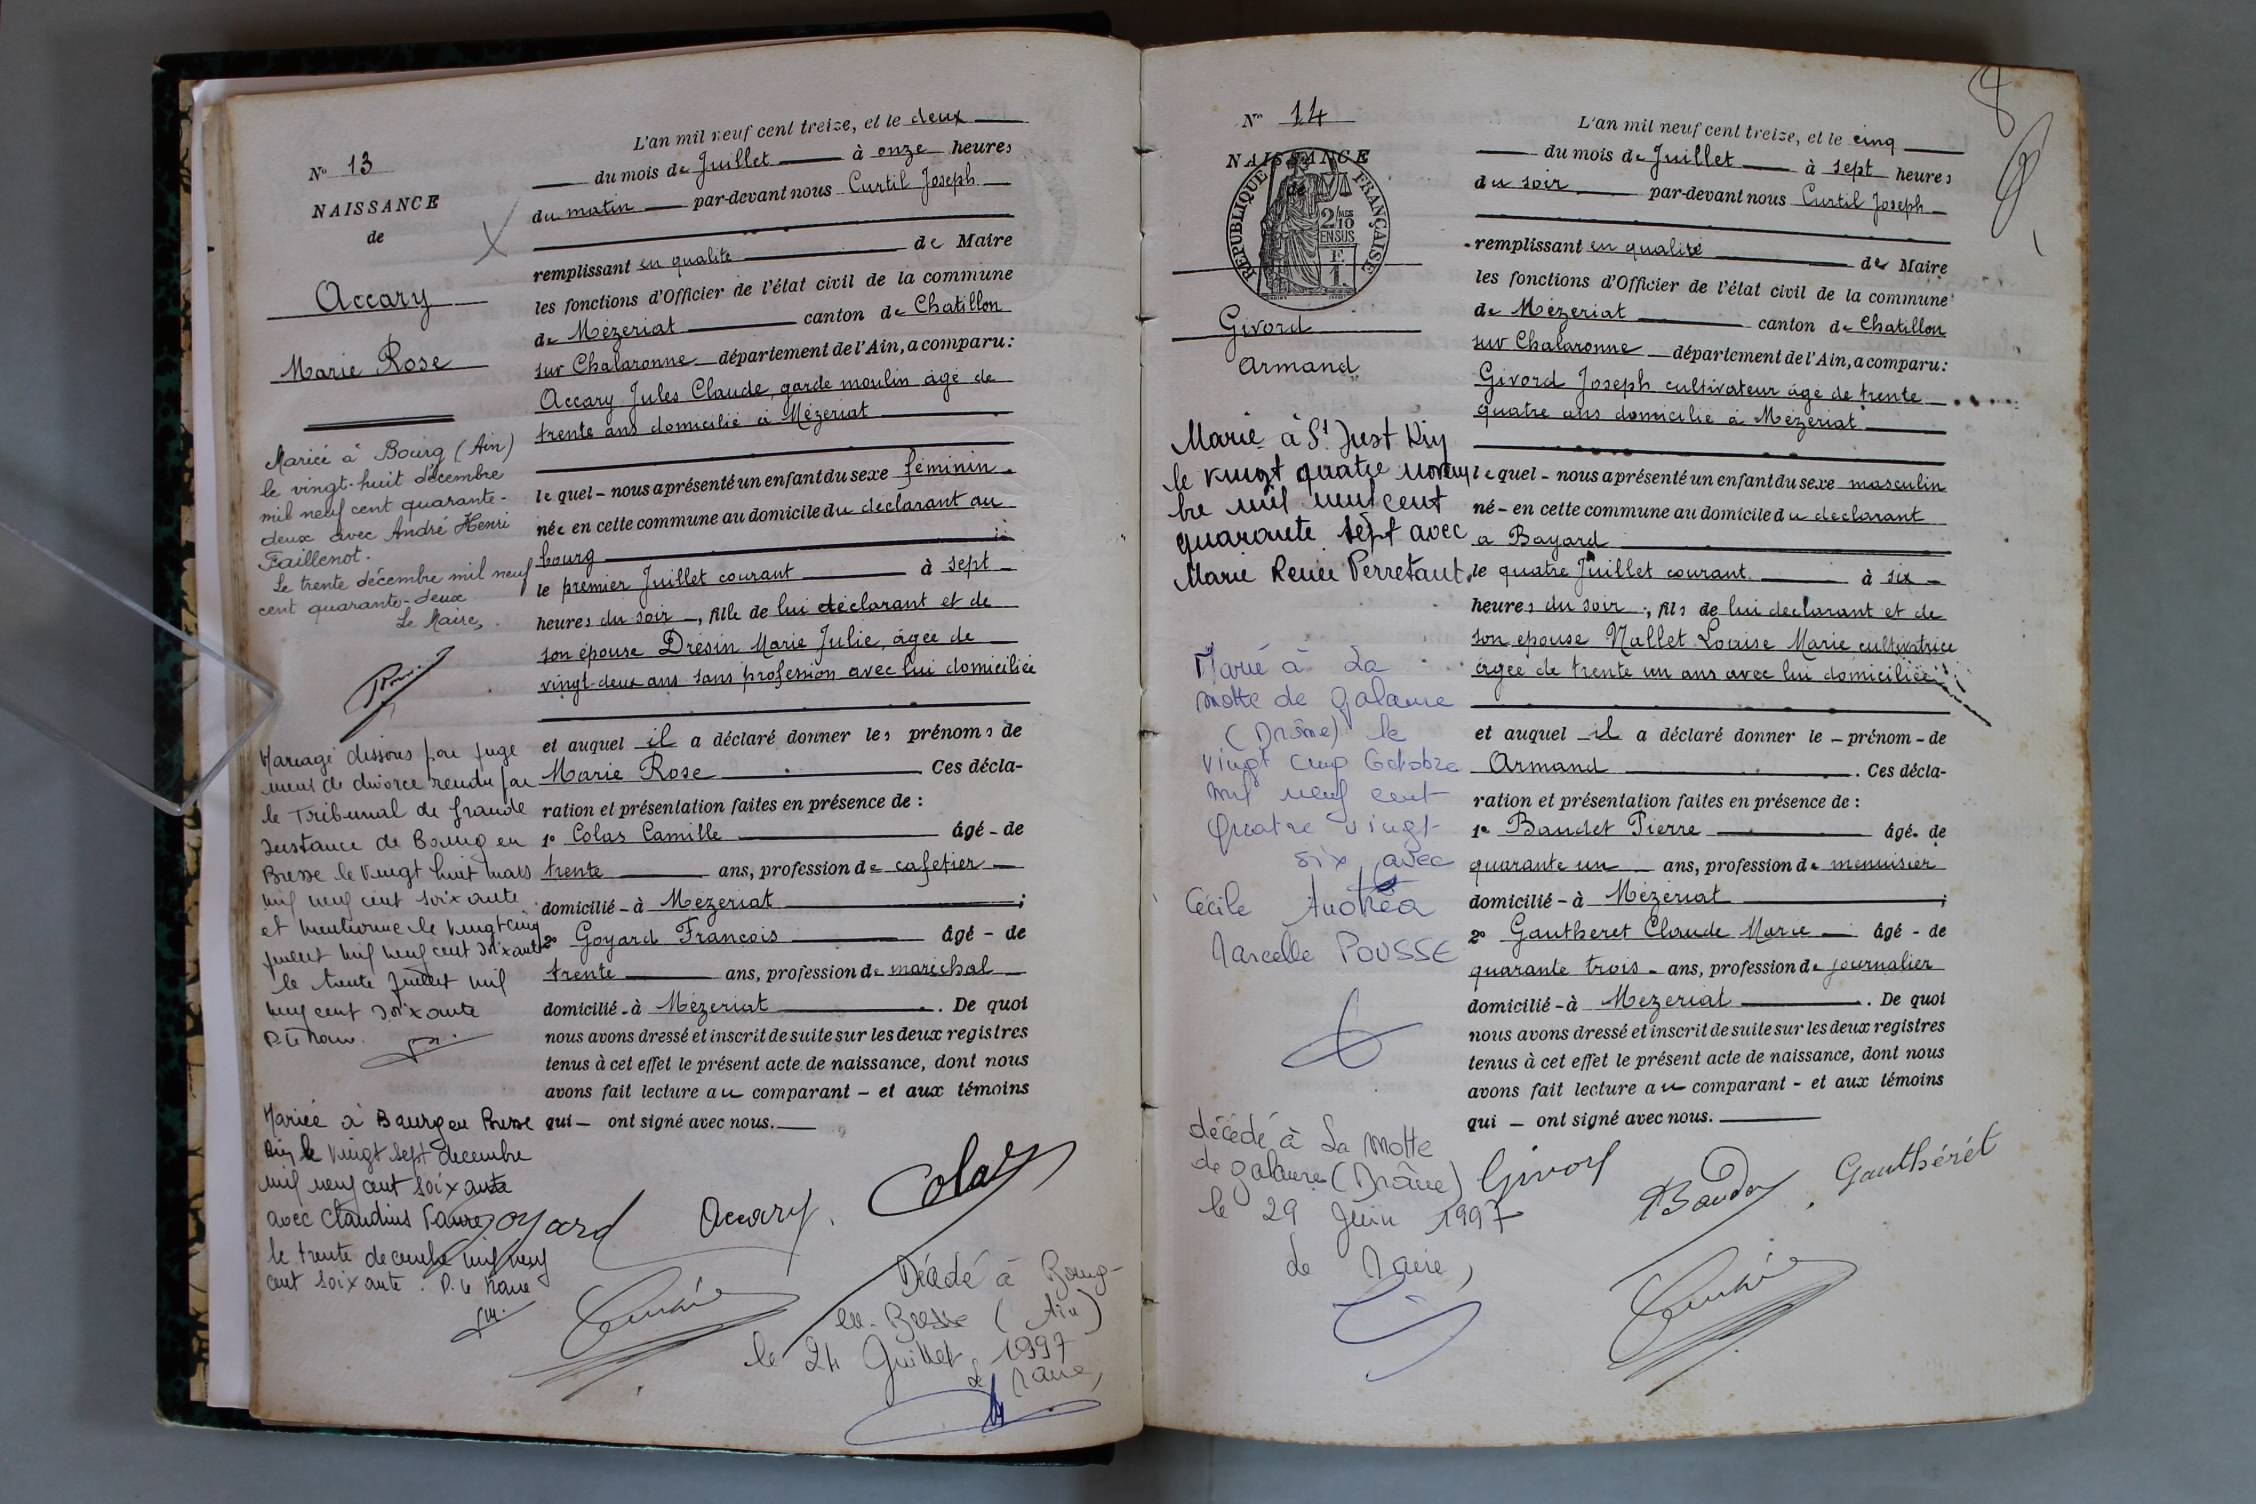 N° 13
NAISSANCE
de
Accary
Marie Rose
Mariée à Bourg (Ain)
le vingt-huit décembre
mil neuf cent quarante-
deux avec André Henri
Faillenot.
Le trente décembre mil neuf
cent quarante-deux
Le Maire,
Mariage dissous par juge
ment de divorce rendu par
le Tribunal de Grande
Instance de Bourg en
Bresse le vingt huit mars
mil neuf cent soixante
et mentionné le vingt cinq
juillet mil neuf cent soixante
le trente Juillet mil
neuf cent soixante
P. le Maire.
Mariée à Bourg en Bresse
Ain le vingt sept decembre
mil neuf cent soixante
avec Claudius
le trente decembre mil neuf
cent soixante. P. le Maire
L'an mil neuf cent treize, et le deux
du mois de Juillet à onze heures
du matin par-devant nous Curtil Joseph
remplissant en qualité de Maire
les fonctions d'Officier de l'état civil de la commune
de Mézeriat canton de Chatillon
sur Chalaronne département de l'Ain, a comparu:
Accary Jules Claude, garde moulin âgé de
trente ans domicilié à Mézeriat
le quel - nous a présenté un enfant du sexe féminin
née en cette commune au domicile du déclarant au
bourg
le premier Juillet courant à sept
heures du soir, fille de lui déclarant et de
son épouse Drésin Marie Julie, âgée de
vingt-deux ans sans profession avec lui domiciliée
et auquel il a déclaré donner les prénoms de
Marie Rose. Ces décla-
ration et présentation faites en présence de :
1° Colas Camille âgé - de
trente ans, profession de cafetier
domicilié - à Mézeriat ;
2° Goyard François âgé - de
trente ans, profession de maréchal
domicilié - à Mézeriat. De quoi
nous avons dressé et inscrit de suite sur les deux registres
tenus à cet effet le présent acte de naissance, dont nous
avons fait lecture au comparant - et aux témoins
qui - ont signé avec nous.
Goyard Accary. Colas
Décédé à Bourg-
en-Bresse (Ain)
le 24 Juillet 1997
Le Maire,
8
N° 14
NAISSANCE
de
RÉPUBLIQUE FRANÇAISE
2/10
EN SUS
E.
1.
Givord
Armand
Marié à St Just Ain
le vingt quatre novem
bre mil neuf cent
quarante sept avec
Marie Renée Perretant.
Marié à La
Motte de Galaure
(Drôme) le
vingt cinq Octobre
mil neuf cent
quatre vingt
six avec
Cécile Andréa
Marcelle POUSSE
décédé à La Motte
de Galaure (Drôme)
le 29 Juin 1997
le Maire,
L'an mil neuf cent treize, et le cinq
du mois de Juillet à sept heures
du soir par-devant nous Curtil Joseph
remplissant en qualité de Maire
les fonctions d'Officier de l'état civil de la commune
de Mézeriat canton de Chatillon
sur Chalaronne département de l'Ain, a comparu:
Givord Joseph cultivateur âgé de trente
quatre ans domicilié à Mézeriat
le quel - nous a présenté un enfant du sexe masculin
né - en cette commune au domicile du déclarant
a Bayard
le quatre Juillet courant à six
heures du soir, fils de lui déclarant et de
son épouse Nallet Louise Marie cultivatrice
âgée de trente un ans avec lui domiciliée
et auquel il a déclaré donner le - prénom - de
Armand. Ces décla-
ration et présentation faites en présence de :
1° Baudet Pierre âgé - de
quarante un ans, profession de menuisier
domicilié - à Mézeriat ;
2° Gautheret Claude Marie âgé - de
quarante trois ans, profession de journalier
domicilié - à Mézeriat. De quoi
nous avons dressé et inscrit de suite sur les deux registres
tenus à cet effet le présent acte de naissance, dont nous
avons fait lecture au comparant - et aux témoins
qui - ont signé avec nous.
Givord Gauthérét